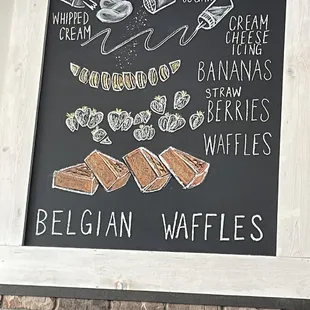 WHIPPED
CREAM
CREAM
CHEESE
ICING
BANANAS
STRAW
BERRIES
WAFFLES
BELGIAN WAFFLES